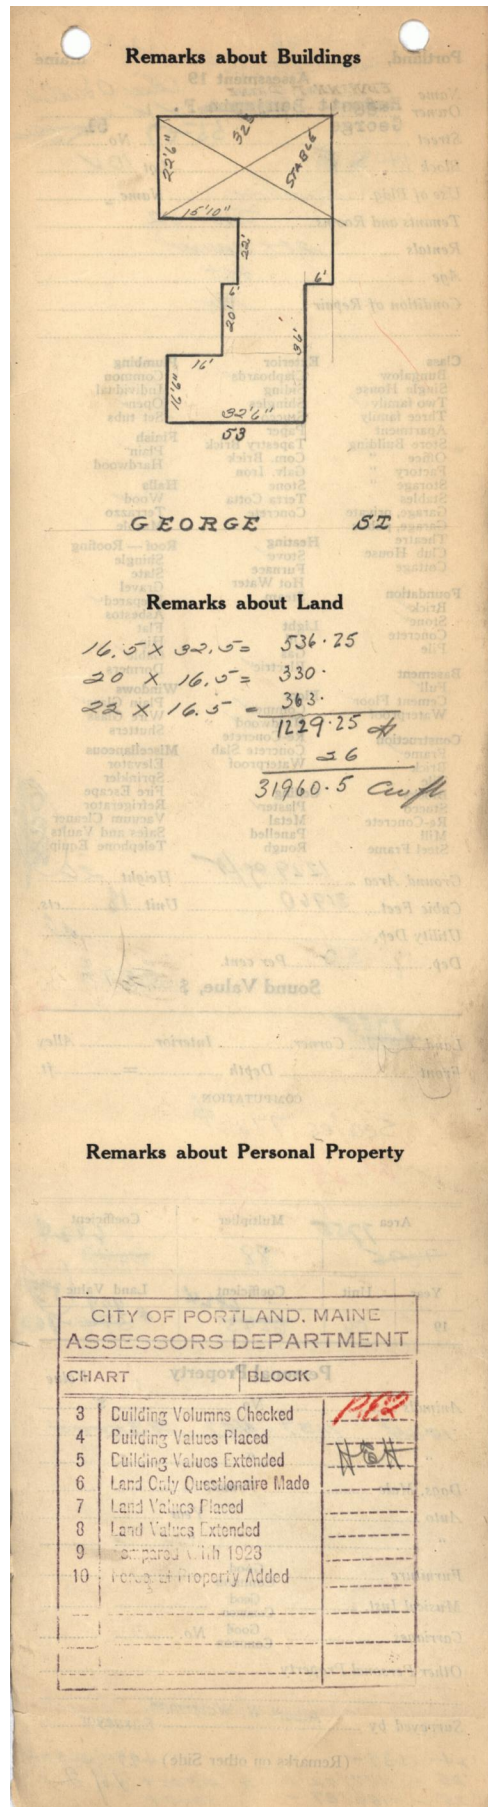 Remarks about Buildings
22'6"
STABLE
15'10"
22'
6'
6'
20'
36'
16'
16'6"
32'6"
53
GEORGE ST
Remarks about Land
16.5 X 32.5 = 536.25
20 X 16.5 = 330.
22 X 16.5 = 363.
1229.25
26
31960.5 Cu ft
Remarks about Personal Property
CITY OF PORTLAND, MAINE
ASSESSORS DEPARTMENT
CHART BLOCK
3 Building Volumns Checked
4 Building Values Placed
5 Building Values Extended
6 Land Only Questionaire Made
7 Land Values Placed
8 Land Values Extended
9 Compared With 1923
10 Personal Property Added